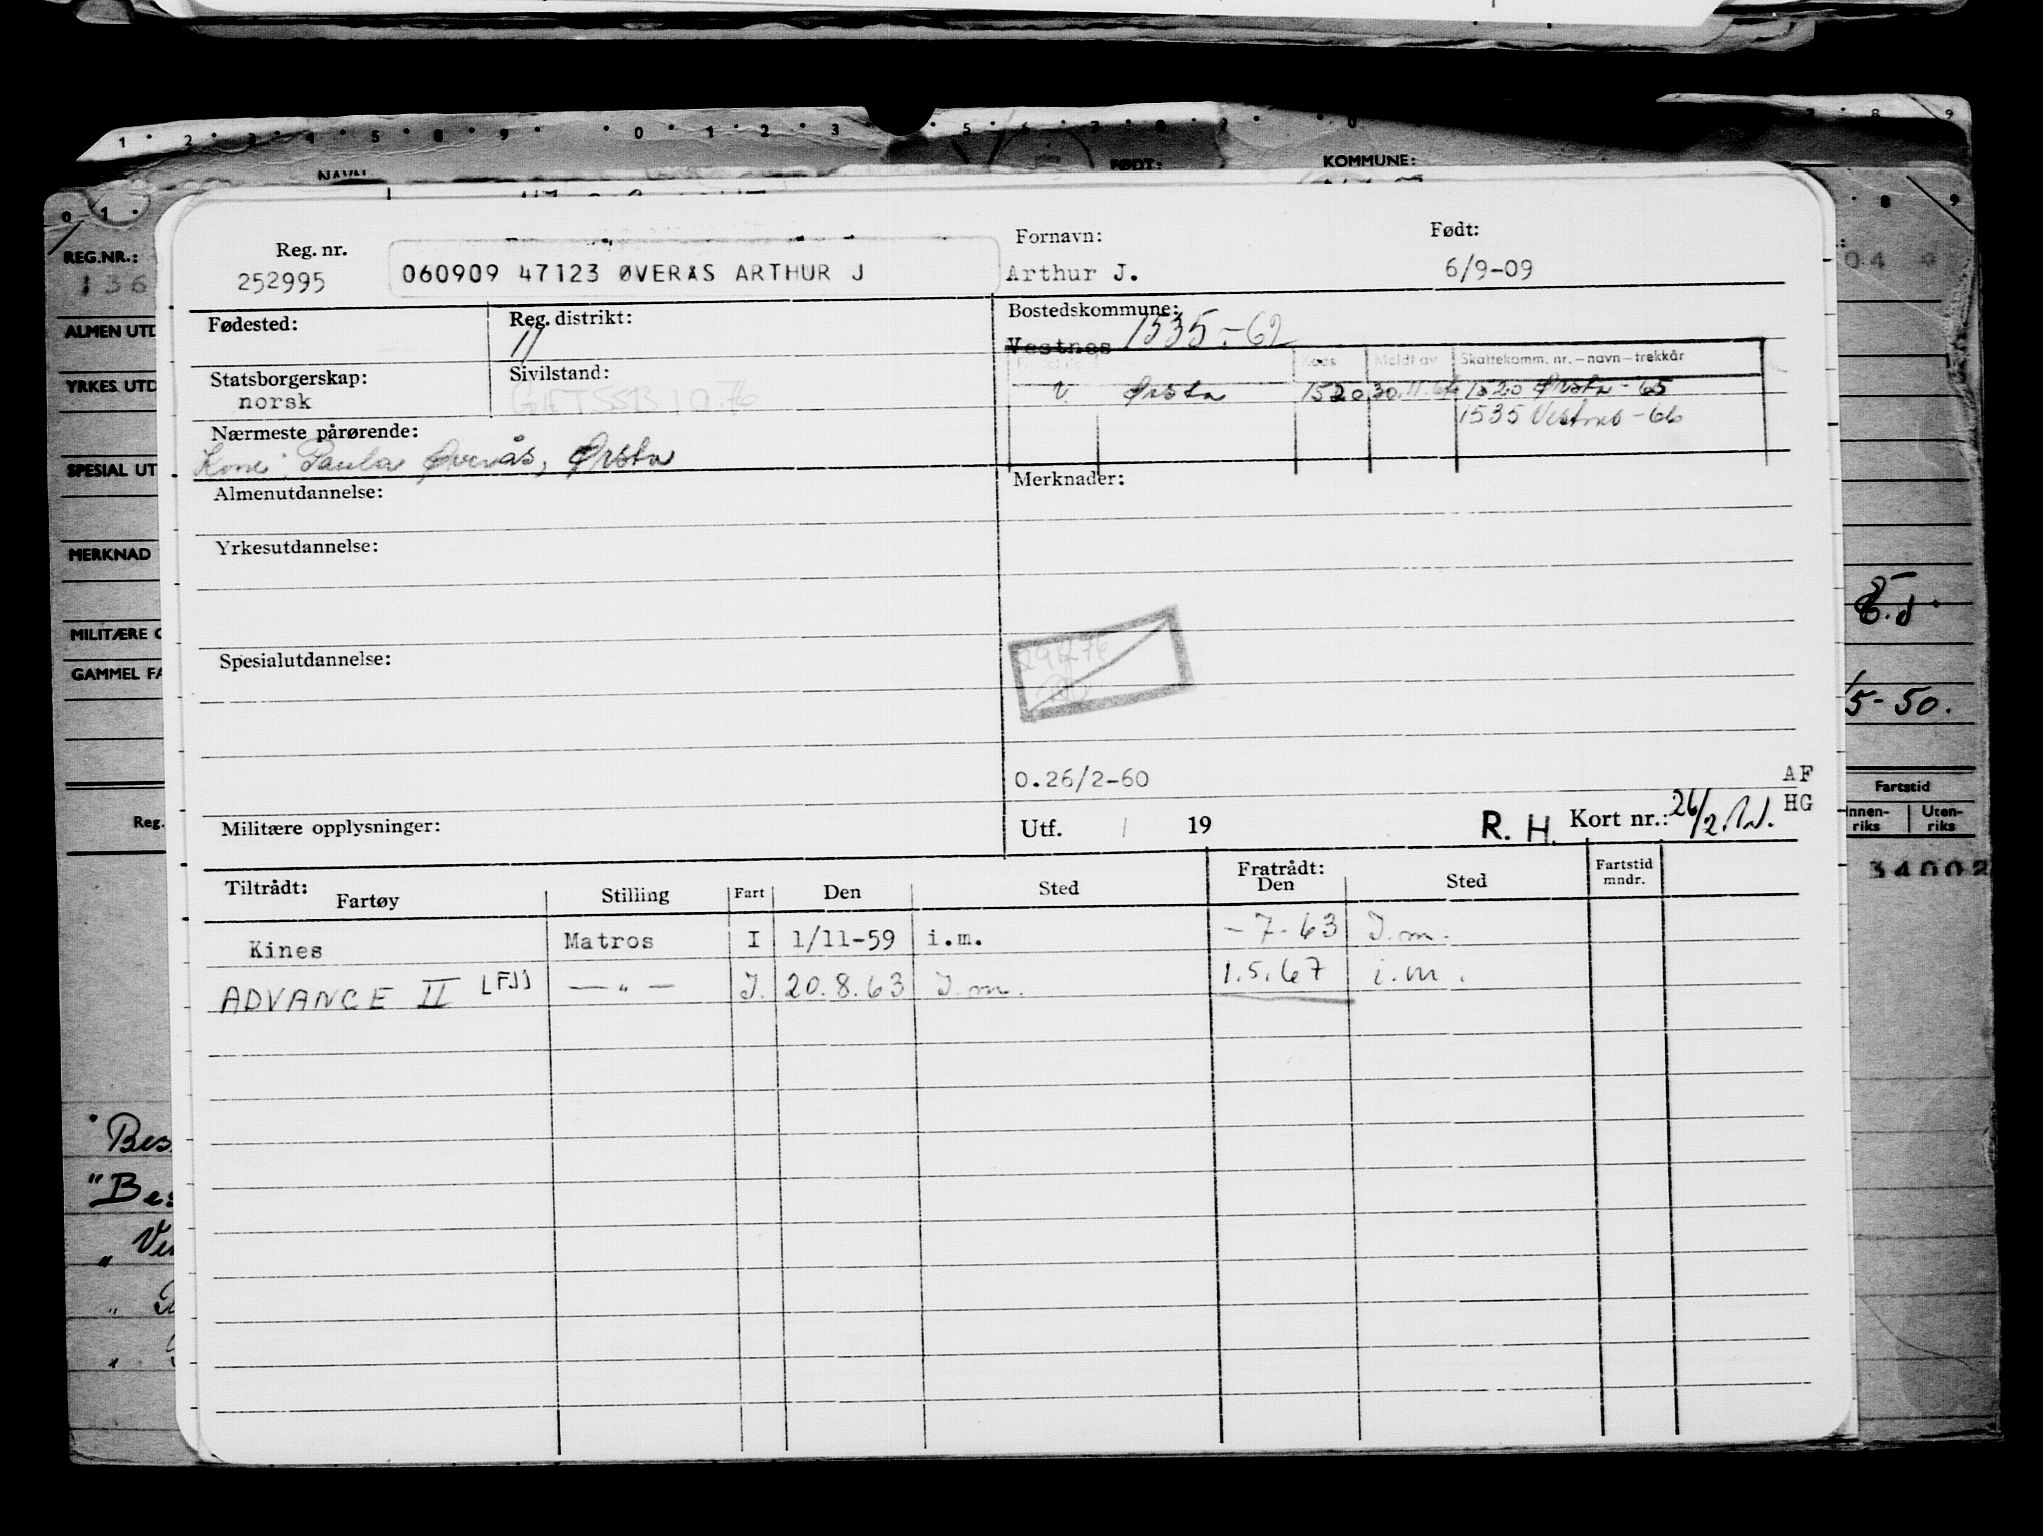 1 2 3 4 5 8 9 0 1 2 3 5 6 7 8 9 0 7 8 9
FØDT:
KOMMUNE:
0 1
8 9
REG.NR.:
136
04
ALMEN UTD
YRKES UTD
SPESIAL UT
MERKNAD
MILITÆRE O
GAMMEL FA
Reg.
5-50.
Fartstid
Innen-
riks
Uten-
riks
34002
Bes
"Bes
" Ve
Reg. nr.
252995
060909 47123 ØVERÅS ARTHUR J
Fornavn:
Arthur J.
Født:
6/9-09
Fødested:
Reg. distrikt:
11
Bostedskommune:
Vestnes 1535-62
Kode Meldt av Skattekomm. nr.-navn-trekkår
V. Ørsta 1520 30.11.64 1520 Ørsta-65
1535 Vestnes-66
Statsborgerskap:
norsk
Sivilstand:
Nærmeste pårørende:
Kone: Paula Øverås, Ørsta
Almenutdannelse:
Merknader:
Yrkesutdannelse:
Spesialutdannelse:
0.26/2-60
AF
HG
Militære opplysninger:
Utf. / 19
R. H. Kort nr.: 26/2.
Tiltrådt:
Fartøy Stilling Fart Den Sted
Fratrådt:
Den Sted
Fartstid
mndr.
Kines Matros I 1/11-59 i.m. -7-63 I.m.
ADVANCE II [FJ] — " — I. 20.8.63 I.m. 1.5.67 i.m.